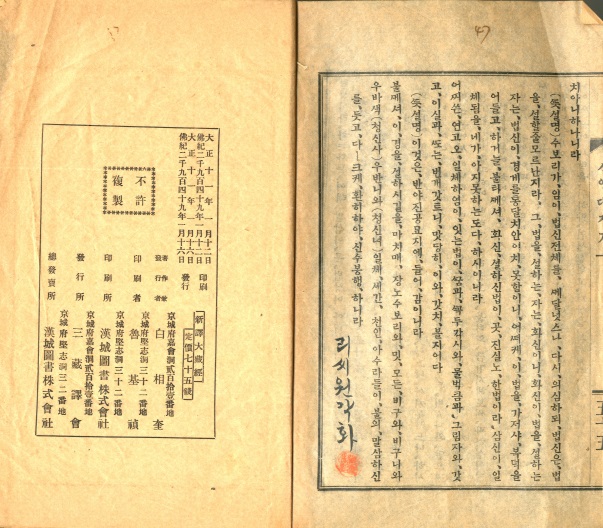 47
치아니하나니라
(뜻설명) 수보리가, 임이, 법신전체를, 깨달넛스나, 다시, 의심하되, 법신은, 법
을, 설할줄모르난지라, 그, 법을, 설하는, 자는, 화신이니, 화신이, 법을, 설하는
자는, 법신이, 경계를통달치안어치, 못함이니, 어떠케, 이, 법을, 가저샤, 복덕을
어들고, 하거늘, 불타께셔, 화신, 설하신법이, 곳, 진실노, 한법이라, 삼신이, 일
체됨을, 네가, 아지못하는도다, 하시이니라
어찌쓴, 연고오, 일체하염이, 잇는법이, 꿈과, 꼭두각시와, 물법큼과, 그림자와, 갓
고, 이실과, 또는, 번개갓흐니, 맛당히, 이와, 갓치, 볼지어다
(뜻설명) 이것은, 반야진공묘지에, 들어, 감이니라
불께셔, 이, 경을, 설하시기를, 마치매, 장노수보리와, 밋, 모든비구와비구니와
우바새(청신사)우반니와(청신녀)일체, 세간, 천인, 아수라들이, 불의, 말삼하신
를, 듯고, 다ㅡ크게, 환희하야, 신수봉행, 하니라
리씨원각화
大正十一年一月十二日 印刷
佛紀二千九百四十九年一月十二日
大正十一年一月十六日 發行
佛紀二千九百四十九年一月十六日
不許
複製
新譯大藏經
定價七十五錢
京城府嘉會洞貳百拾壹番地
著作兼
發行者 白相奎
京城府堅志洞三十二番地
印刷者 魯基禎
京城府堅志洞三十二番地
印刷所 漢城圖書株式會社
京城府嘉會洞貳百拾壹番地
發行所 三藏譯會
京城府堅志洞三二番地
總發賣所 漢城圖書株式會社